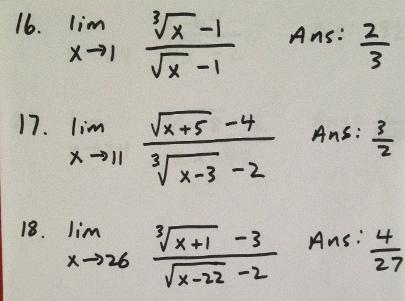 16. lim x→1 (∛x - 1)/(√x - 1) Ans: 2/3
17. lim x→11 (√(x+5) - 4)/(∛(x-3) - 2) Ans: 3/2
18. lim x→26 (∛(x+1) - 3)/(√(x-22) - 2) Ans: 4/27